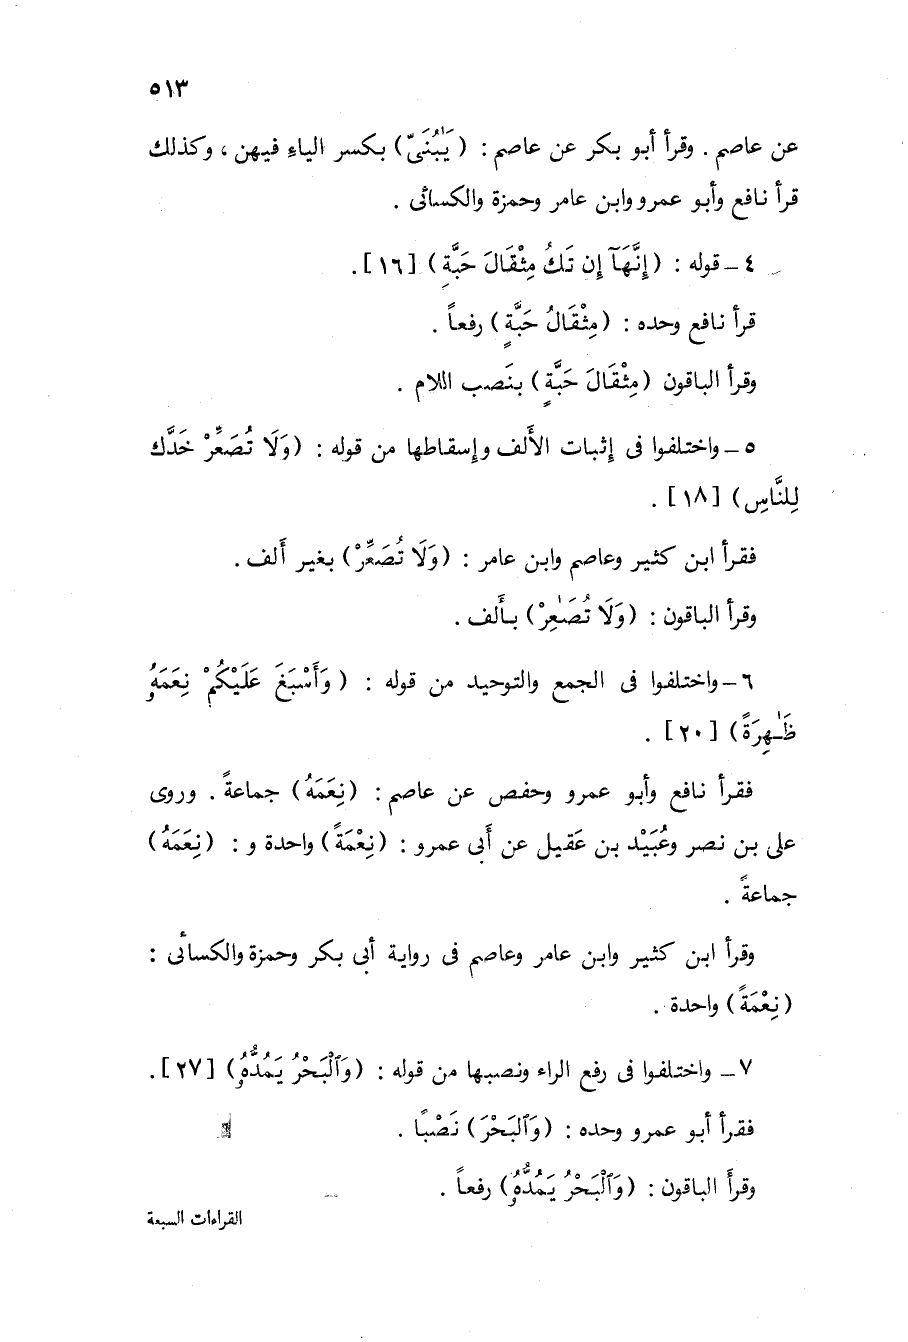 ٥١٣
عن عاصم . وقرأ أبو بكر عن عاصم : ( يَٰبُنَىِّ ) بكسر الياءِ فيهن ، وكذلك
قرأ نافع وأبو عمرو وابن عامر وحمزة والكسائى .
٤ – قوله : ( إِنَّهَآ إِن تَكُ مِثْقَالَ حَبَّةٍ ) [ ١٦ ] .
قرأ نافع وحده : ( مِثْقَالُ حَبَّةٍ ) رفعاً .
وقرأ الباقون ( مِثْقَالَ حَبَّةٍ ) بنَصب اللام .
٥ – واختلفوا فى إثبات الأَلف وإسقاطها من قوله : ( وَلَا تُصَعِّرْ خَدَّكَ
لِلنَّاسِ ) [ ١٨ ] .
فقرأ ابن كثير وعاصم وابن عامر : ( وَلَا تُصَعِّرْ ) بغير أَلف .
وقرأ الباقون : ( وَلَا تُصَٰعِرْ ) بأَلف .
٦ – واختلفوا فى الجمع والتوحيد من قوله : ( وَأَسْبَغَ عَلَيْكُمْ نِعَمَهُۥ
ظَٰهِرَةً ) [ ٢٠ ] .
فقرأ نافع وأبو عمرو وحفص عن عاصم : ( نِعَمَهُ ) جماعةً . وروى
على بن نصر وعُبَيْد بن عَقيل عن أَبى عمرو : ( نِعْمَةً ) واحدة و : ( نِعَمَهُ )
جماعةً .
وقرأ ابن كثير وابن عامر وعاصم فى رواية أبى بكر وحمزة والكسائى :
( نِعْمَةً ) واحدة .
٧ – واختلفوا فى رفع الراء ونصبها من قوله : ( وَٱلْبَحْرُ يَمُدُّهُۥ ) [ ٢٧ ] .
فقرأ أبو عمرو وحده : ( وَٱلبَحْرَ ) نَصْبًا .
وقرأَ الباقون : ( وَٱلْبَحْرُ يَمُدُّهُۥ ) رفعاً .
القراءات السبعة